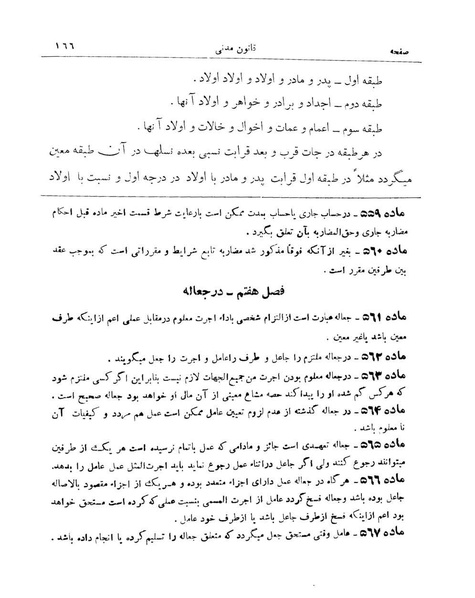 صفحه قانون مدنی ۱۶۶
طبقه اول ـ پدر و مادر و اولاد و اولاد اولاد .
طبقه دوم ـ اجداد و برادر و خواهر و اولاد آنها .
طبقه سوم ـ اعمام و عمات و اخوال و خالات و اولاد آنها .
در هر طبقه درجات قرب و بعد قرابت نسبی بعده نسلها در آن طبقه معین
میگردد مثلاً در طبقه اول قرابت پدر و مادر با اولاد در درجه اول و نسبت با اولاد
ماده ۵۵۹ ـ در حساب جاری یا حساب بمدت ممکن است با رعایت شرط قسمت اخیر ماده قبل احکام
مضاربه جاری و حق‌المضاربه بآن تعلق بگیرد .
ماده ۵۶۰ ـ بغیر از آنکه فوقاً مذکور شد مضاربه تابع شرایط و مقرراتی است که بموجب عقد
بین طرفین مقرر است .
فصل هفتم ـ در جعاله
ماده ۵۶۱ ـ جعاله عبارت است از التزام شخصی باداء اجرت معلوم در مقابل عملی اعم از اینکه طرف
معین باشد یا غیر معین .
ماده ۵۶۲ ـ در جعاله ملتزم را جاعل و طرف را عامل و اجرت را جعل میگویند .
ماده ۵۶۳ ـ در جعاله معلوم بودن اجرت من جمیع‌الجهات لازم نیست بنابراین اگر کسی ملتزم شود
که هر کس گم شده او را پیدا کند حصه مشاع معینی از آن مال او خواهد بود جعاله صحیح است .
ماده ۵۶۴ ـ در جعاله گذشته از عدم لزوم تعیین عامل ممکن است عمل هم مردد و کیفیات آن
نا معلوم باشد .
ماده ۵۶۵ ـ جعاله تعهدی است جائز و مادامی که عمل باتمام نرسیده است هر یک از طرفین
میتوانند رجوع کنند ولی اگر جاعل در اثناء عمل رجوع نماید باید اجرت‌المثل عمل عامل را بدهد.
ماده ۵۶۶ ـ هر گاه در جعاله عمل دارای اجزاء متعدد بوده و هر یک از اجزاء مقصود بالاصاله
جاعل بوده باشد و جعاله فسخ گردد عامل از اجرت المسمی بنسبت عملی که کرده است مستحق خواهد
بود اعم از اینکه فسخ از طرف جاعل باشد یا از طرف خود عامل .
ماده ۵۶۷ ـ عامل وقتی مستحق جعل میگردد که متعلق جعاله را تسلیم کرده یا انجام داده باشد .